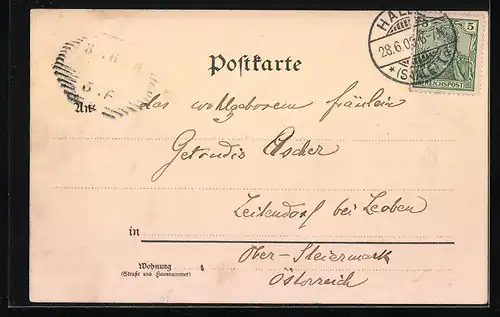 HALLE
28.6.05 6-7N.
*(SAALE)
5
REICHSPOST
Postkarte
An
das wohlgeboren fräulein
Ascher
bei Leoben
in
Wohnung
(Straße und Hausnummer)
Ober-Steiermark
Österreich